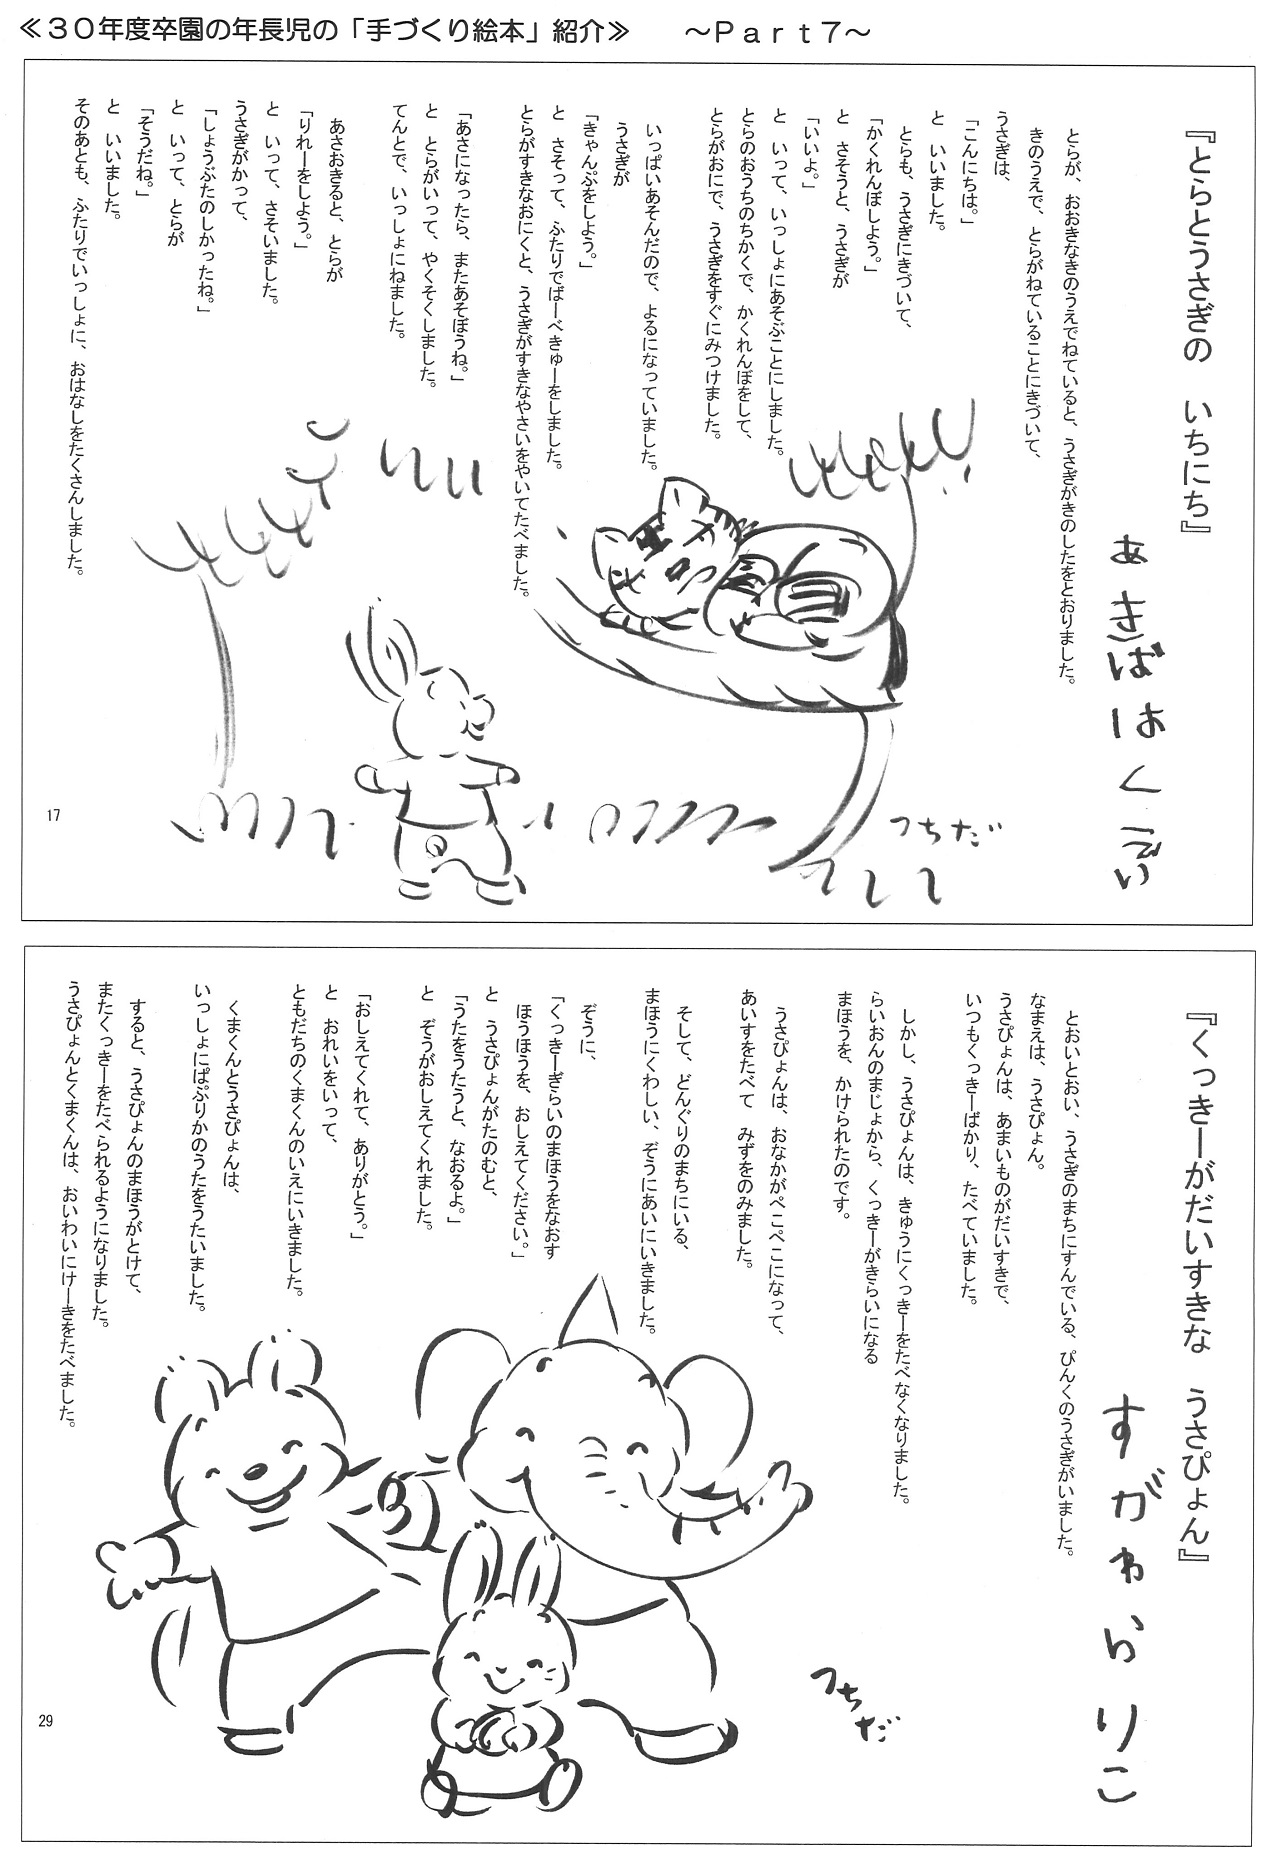 ≪３０年度卒園の年長児の「手づくり絵本」紹介≫　　～Ｐａｒｔ７～
『とらとうさぎの　いちにち』
あきばはくだい
とらが、おおきなきのうえでねていると、うさぎがきのしたをとおりました。
きのうえで、とらがねていることにきづいて、
うさぎは、
「こんにちは。」
と　いいました。
とらも、うさぎにきづいて、
「かくれんぼしよう。」
と　さそうと、うさぎが
「いいよ。」
と　いって、いっしょにあそぶことにしました。
とらのおうちのちかくで、かくれんぼをして、
とらがおにで、うさぎをすぐにみつけました。
いっぱいあそんだので、よるになっていました。
うさぎが
「きゃんぷをしよう。」
と　さそって、ふたりでばーべきゅーをしました。
とらがすきなおにくと、うさぎがすきなやさいをやいてたべました。
「あさになったら、またあそぼうね。」
と　とらがいって、やくそくしました。
てんとで、いっしょにねました。
あさおきると、とらが
「りれーをしよう。」
と　いって、さそいました。
うさぎがかって、
「しょうぶたのしかったね。」
と　いって、とらが
「そうだね。」
と　いいました。
そのあとも、ふたりでいっしょに、おはなしをたくさんしました。
つちだ
17
『くっきーがだいすきな　うさぴょん』
すがわらりこ
とおいとおい、うさぎのまちにすんでいる、ぴんくのうさぎがいました。
なまえは、うさぴょん。
うさぴょんは、あまいものがだいすきで、
いつもくっきーばかり、たべていました。
しかし、うさぴょんは、きゅうにくっきーをたべなくなりました。
らいおんのまじょから、くっきーがきらいになる
まほうを、かけられたのです。
うさぴょんは、おなかがぺこぺこになって、
あいすをたべて　みずをのみました。
そして、どんぐりのまちにいる、
まほうにくわしい、ぞうにあいにいきました。
ぞうに、
「くっきーぎらいのまほうをなおす
ほうほうを、おしえてください。」
と　うさぴょんがたのむと、
「うたをうたうと、なおるよ。」
と　ぞうがおしえてくれました。
「おしえてくれて、ありがとう。」
と　おれいをいって、
ともだちのくまくんのいえにいきました。
くまくんとうさぴょんは、
いっしょにぱぷりかのうたをうたいました。
すると、うさぴょんのまほうがとけて、
またくっきーをたべられるようになりました。
うさぴょんとくまくんは、おいわいにけーきをたべました。
つちだ
29